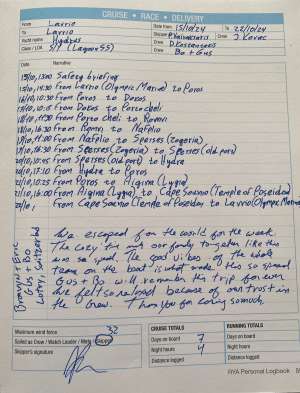 CRUISE • RACE • DELIVERY
From Lavrio
To Lavrio
Date from 15/10/24 To 22/10/24
Yacht name Hydrus
Class / LOA S/Y (Lagoon 55)
Crew D. Kostopoulos
Crew J. Kovac
Crew Bo + Gus
Date Narrative
15/10, 13:00 Safety briefing
15/10, 14:30 From Lavrio (Olympic Marine) to Poros
16/10, 10:30 From Poros to Dokos
From Dokos to Porto cheli
From Porto cheli to Romvi
From Romvi to Nafplio
From Nafplio to Spetses (Zogeria)
From Spetses (Zogeria) to Spetses (old port)
From Spetses (old port) to Hydra
From Hydra to Poros
From Poros to Aigina (Lygia)
From Aigina (Lygia) to Cape Sounio (Temple of Poseidon)
22/10, From Cape Sounio (Temple of Poseidon to Lavrio (Olympic Marine)
We escaped from the world for the week.
The cozy time our family together like this
was so special. The good vibes of the whole
team on the boat is what made this so special
Gus + Bo will remember this trip for ever
We felt so relaxed because of our trust in
the Crew. Thank you for caring so much
Gus + Bo
Lutry, Switzerland
Maximum wind force 32
Sailed as Crew / Watch Leader / Mate / Skipper
Skipper's signature
CRUISE TOTALS
Days on board 7
Night hours 4
Distance logged
RUNNING TOTALS
Days on board
Night hours
Distance logged
RYA Personal Logbook